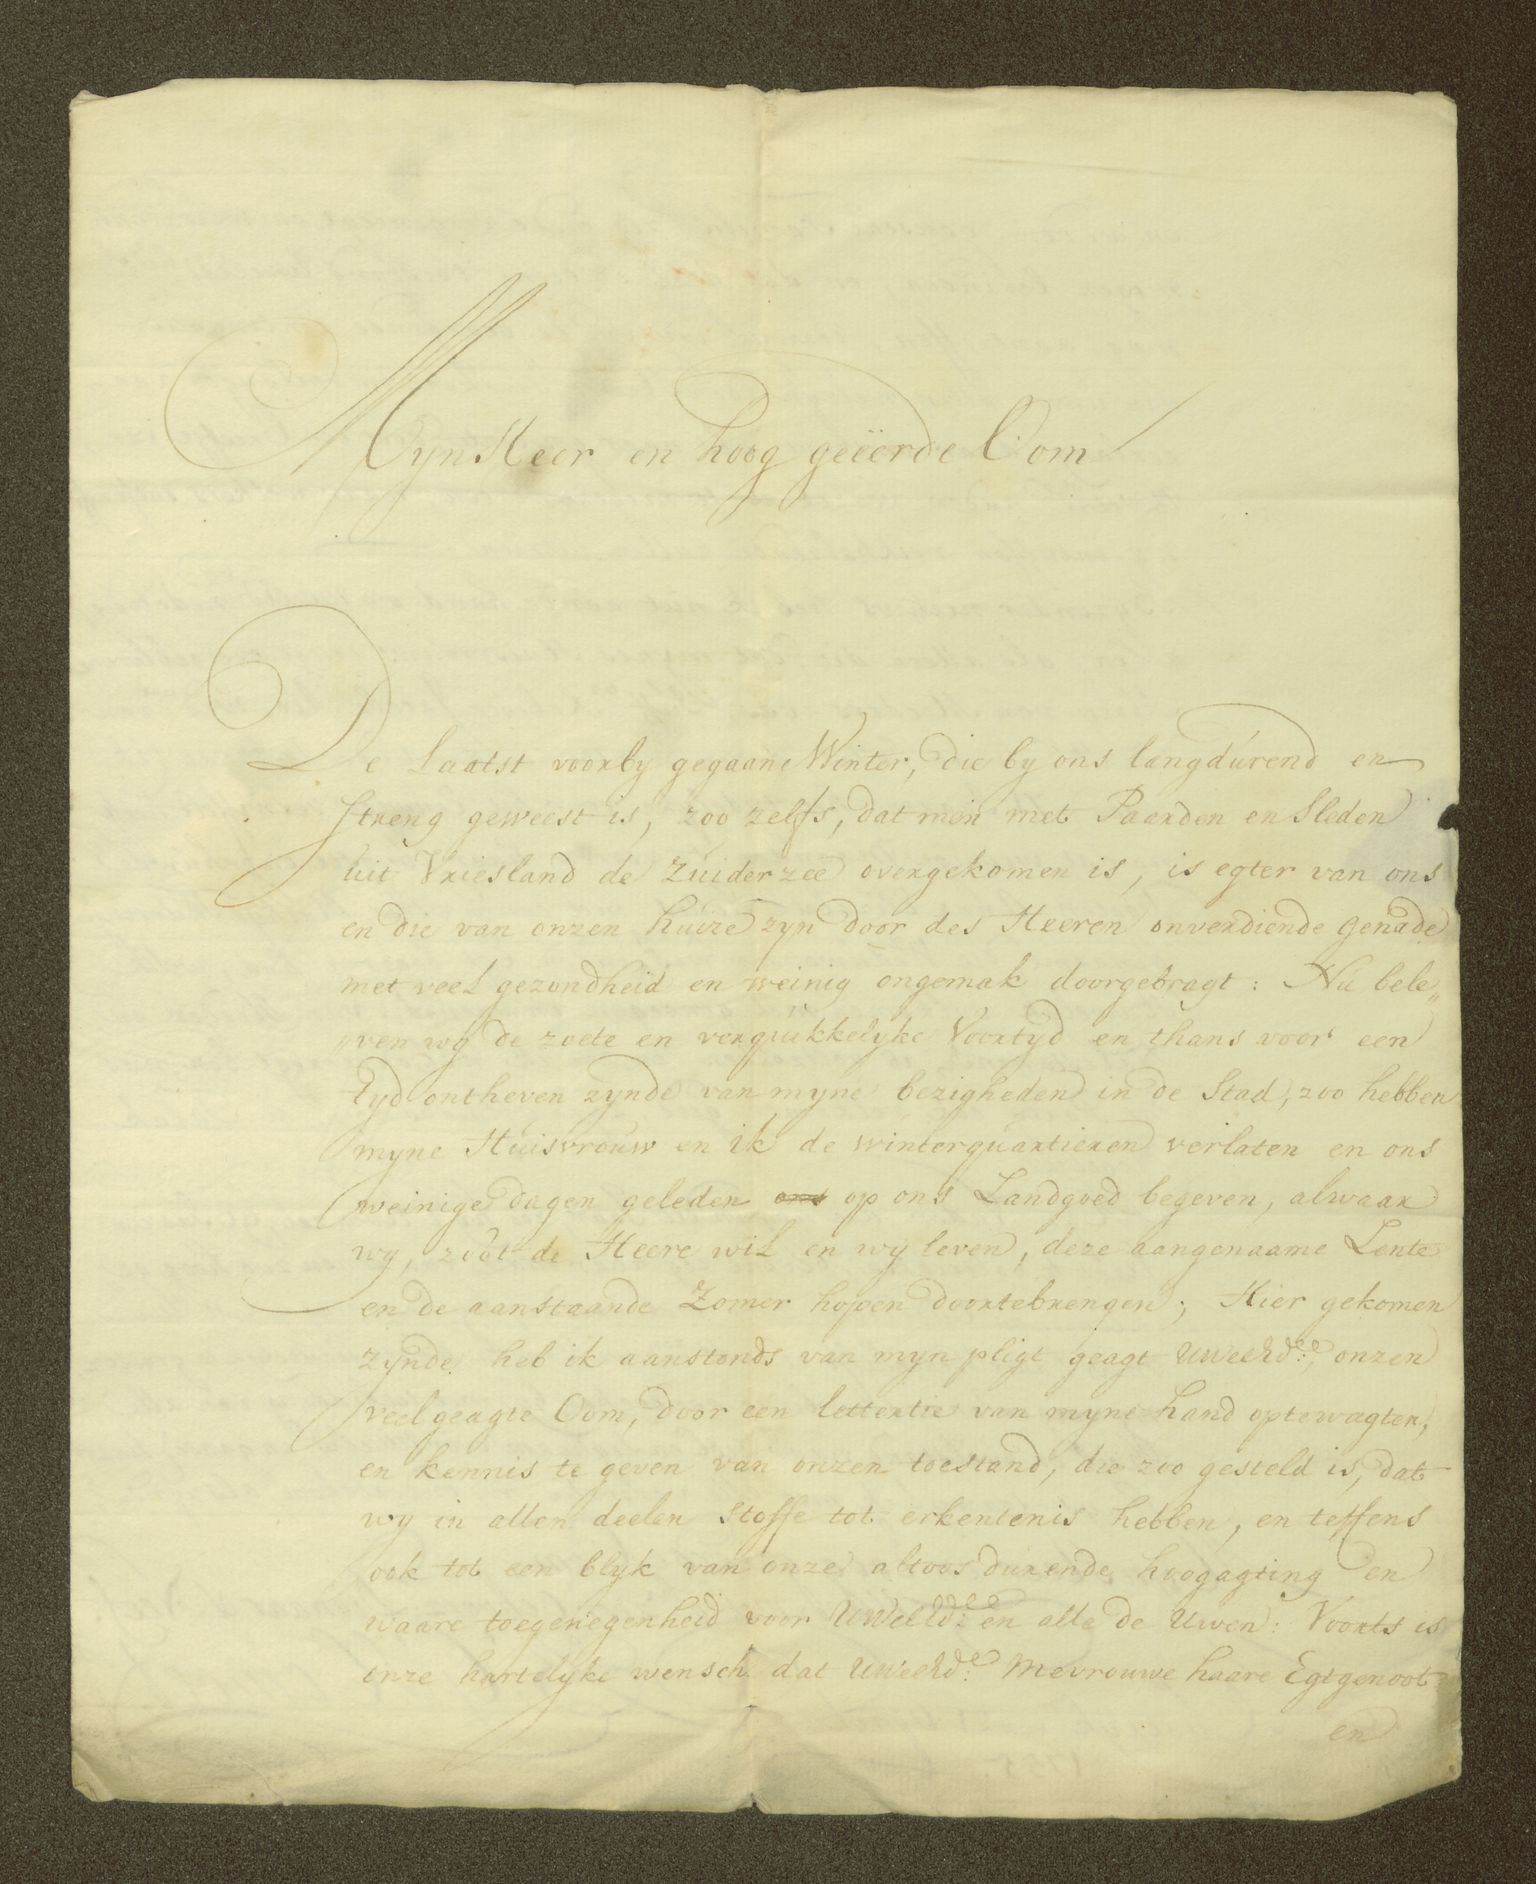 Mynheer en hoog geëerde Oom
De laatst voorby gegaane Winter, die by ons langdúrend en
streng geweest is, zoo zelfs, dat men met Paarden en Sleden
uit Vriesland de Zuiderzee overgekomen is, is egter van ons
en die van onzen huize zyn door des Heeren onverdiende genade
met veel gezondheid en weinig ongemak doorgebragt: Nú bele„
„ven wy de zoete en verquikkelyke Voortyd en thans voor een
tyd ontheven zynde van myne bezigheden in de Stad, zoo hebben
myne Húisvroúw en ik de winterquartieren verlaten en ons
weinige dagen geleden ons op ons Landgoed begeven, alwaar
wy, zoo't de Heere wil en wy leven, deze aangenaame Lente
en de aanstaande Zomer hopen doortebrengen; Hier gekomen
zynde heb ik aanstonds van myn pligt geagt UWeerd:e, onzen
veelgeagte Oom, door een lettertie van myne hand optewagten,
en kennis te geven van onzen toestand, die zoo gesteld is, dat
wy in allen deelen stoffe tot erkentenis hebben, en teffens
ook tot een blyk van onze altoos durende hoogagting en
waare toegenegenheid voor UWeerd:e en alle de Uwen: Voorts is
onze hartelyke wensch dat UWeerd:e Mevrouwe haare Egtgenoot
en